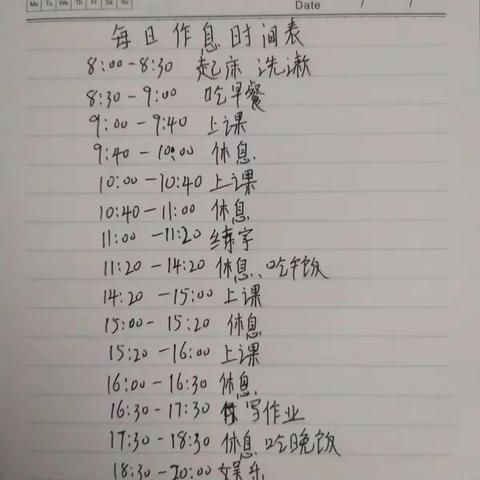 Mo Tu We Th Fr Sa Su
Date / /
每日作息时间表
8:00-8:30 起床 洗漱
8:30-9:00 吃早餐
9:00-9:40 上课
9:40-10:00 休息.
10:00-10:40 上课
10:40-11:00 休息
11:00-11:20 练字
11:20-14:20 休息、吃午饭
14:20-15:00 上课
15:00-15:20 休息
15:20-16:00 上课
16:00-16:30 休息.
16:30-17:30 写作业
17:30-18:30 休息 吃晚饭
18:30-20:00 娱乐